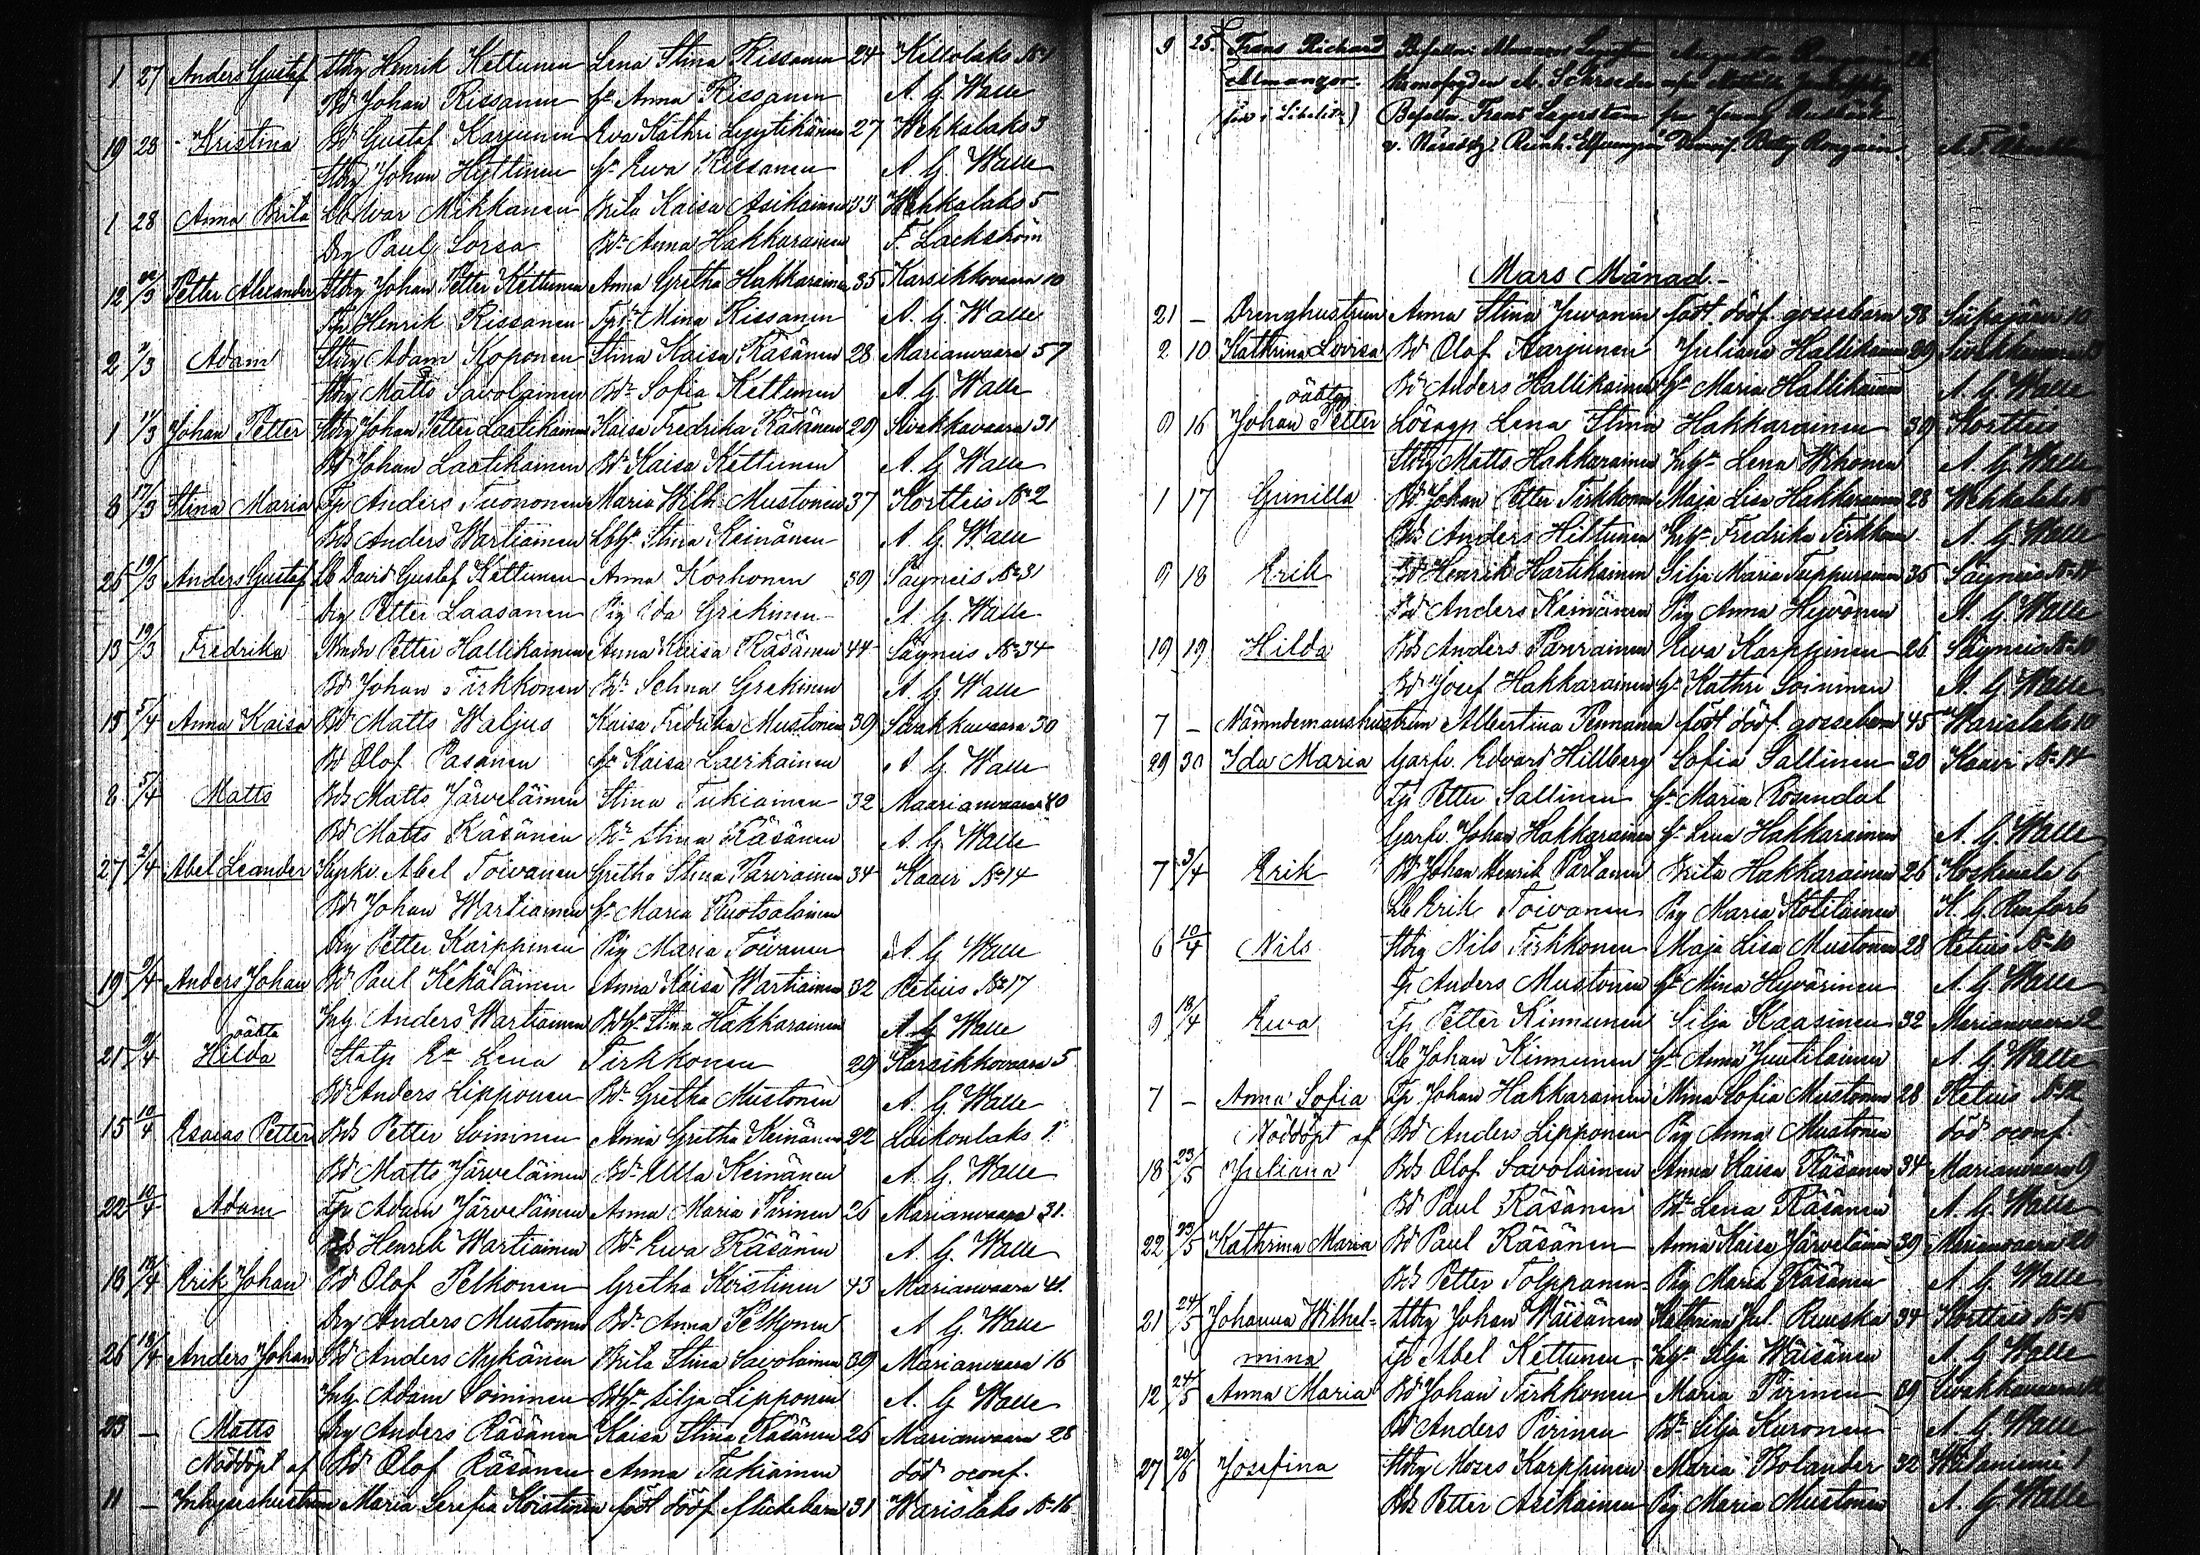 1 27 Anders Gustaf Stbg Henrik Kettunen Lena Stina Rissanen 24 Kellolaks No 1
Bd Johan Rissanen hu Anna Rissanen A. G. Walle
19 28 Kristina Bd Gustaf Karjunen Ewa Kathri Lyytikäinen 27 Wehkalaks 3
Stbg Johan Hyttinen hu Ewa Rissanen A. G. Walle
1 28 Anna Brita Lb Iwar Mikkanen Brita Kaisa Asikainen 33 Wehkalaks 5
Drg Paul Sorsa Bda Anna Hakkarainen F. Lackström
12 /3 Petter Alexander Stbg Johan Petter Kettunen Anna Gretha Hakkarainen 35 Karsikkovaara 10
Henrik Rissanen Mina Rissanen A. G. Walle
2 /3 Adam Stbg Adam Koponen Stina Kaisa Räsänen 28 Marianvaara 57
Stbg Matts Savolainen Bda Sofia Kettunen A. G. Walle
1 11/3 Johan Petter Stbg Johan Petter Laatikainen Kaisa Fredrika Räsänen 29 Sivakkavaara 31
Bd Johan Laatikainen Bda Kaisa Kettunen A. G. Walle
8 17/3 Stina Maria Tp Anders Tuononen Maria Wilh. Mustonen 37 Kortteis No 2
Bds Anders Wartiainen Lbhu Stina Keinänen A. G. Walle
26 19/3 Anders Gustaf Lb David Gustaf Kettunen Anna Korhonen 39 Säyneis No 31
Drg Petter Laasanen Pig Ida Grekinen A. G. Walle
13 19/3 Fredrika Nmdn Petter Hallikainen Anna Kaisa Räsänen 44 Säyneis No 34
Bd Johan Tirkkonen Bda Selma Grekinen A. G. Walle
18 5/4 Anna Kaisa Bd Matts Waljus Kaisa Fredrika Mustonen 39 Sivakkavaara 30
Bd Olof Pasanen hu Kaisa A. G. Walle
8 5/4 Matts Bds Matts Järveläinen Stina Tukiainen 32 Maarianvaara 80
Bd Matts Räsänen Bda Stina Räsänen A. G. Walle
27 /4 Abel Leander Abel Toivanen Gretha Stina Parviainen 34 Kaavi No 14
Bd Johan Wartiainen hu Maria Ruotsalainen
Drg Petter Karppinen Pig Maria Toivanen A. G. Walle
19 9/4 Anders Johan Bd Paul Kekäläinen Anna Kaisa Wartiainen 32 Retuis No 17
Inhg Anders Wartiainen Bdhu Stina Hakkarainen A. G. Walle
oäkta
21 9/4 Hilda Lena Tirkkonen 29 Karsikkovaara 5
Bd Anders Lipponen Bda Gretha Mustonen A. G. Walle
15 10/4 Esaias Petter Bds Petter Soininen Anna Gretha Keinänen 22 Luikonlaks 1
Bd Matts Järveläinen Bda Ulla Keinänen A. G. Walle
22 10/4 Adam Tp Adam Järveläinen Anna Maria Pirinen 26 Marianvaara 31
Bds Henrik Wartiainen Bda Ewa Räsänen A. G. Walle
18 13/4 Erik Johan Bd Olof Pelkonen Gretha Koistinen 43 Marianvaara 41
Drg Anders Mustonen Bda Anna Pelkonen A. G. Walle
26 13/4 Anders Johan Bd Anders Nykänen Brita Stina Savolainen 39 Marianvaara 16
Inhg Adam Soininen Bdhu Silja Lipponen A. G. Walle
23 — Matts Drg Anders Räsänen Kaisa Stina Räsänen 26 Marianvaara 28
Nöddöpt af Bd Olof Räsänen Anna Tukiainen död oconf.
11 — Inhyseshustrun Maria Serefia Koistinen född dödf. flickebarn 31 Warislaks No 16
9 25 Frans Richard Befallm Augusta
Almanzor Kronofogden A. Schroeder
(för i Libelitz) Befallm. Frans Lagerstam fru Fanny
v. Reinh. Demois. Betty
Mars Månad.
21 — Drenghustrun Anna Stina Juvonen född dödf. gossebarn 38 Suihejärvi 10
2 10 Kathrina Lovisa Bd Olof Karjunen Juliana Hallikainen 29
Bd Anders Hallikainen hu Maria Hallikainen A. G. Walle
oäkta
9 16 Johan Petter Lösagp Lena Stina Hakkarainen 39 Kortteis
Stbg Matts Hakkarainen Inhu Lena Wihonen A. G. Walle
1 17 Gunilla Bd Johan Petter Tirkkonen Maja Lisa Hakkarainen 28 Wehkalaks
Bds Anders Hiltunen Inhu Fredrika Tirkkonen A. G. Walle
9 18 Erik Bd Henrik Hartikainen Silja Maria Tuppurainen 36 Säyneis
Bd Anders Keinänen Pig Anna Hyvönen A. G. Walle
19 19 Hilda Bds Anders Parviainen Ewa Karppinen 26 Säyneis No 10
Bd Josef Hakkarainen hu Kathri Soininen A. G. Walle
7 — Nämndemanshustrun Albertina Pennanen född dödf. gossebarn 45 Warislaks 10
29 30 Ida Maria Garfv. Edvard Hillberg Sofia Sallinen 30 Kaavi No 14
Tp Petter Sallinen hu Maria Rosendal
Garfv. Johan Hakkarainen hu Lena Hakkarainen A. G. Walle
7 3/4 Erik Bd Johan Henrik Partanen Brita Hakkarainen 26 Koskenala 6
Lb Erik Toivanen Pig Maria Kotilainen K. G. Renfors
6 10/4 Nils Stbg Nils Tirkkonen Maja Lisa Mustonen 28 Retuis No 10
Tp Anders Mustonen hu Mina Hyvärinen A. G. Walle
9 13/4 Ewa Tp Petter Kinnunen Silja Kaasinen 32 Marianvaara 2
Lb Johan Kinnunen hu Anna Juutilainen A. G. Walle
7 — Anna Sofia Tp Johan Hakkarainen Mina Sofia Mustonen 28 Retuis No 12
Nöddöpt af Bd Anders Lipponen Pig Anna Mustonen död oconf.
18 23/5 Juliana Bds Olof Savolainen Anna Kaisa Räsänen 34 Marianvaara 9
Bd Paul Räsänen Bda Lena Räsänen A. G. Walle
22 23/5 Kathrina Maria Bd Paul Räsänen Anna Kaisa Järveläinen 39 Marianvaara 20
Bds Petter Tolppanen Pig Maria Räsänen A. G. Walle
21 24/5 Johanna Wilhel- Stbg Johan Wäisänen Kathrina Jul. Ruuska 34 Kortteis No 15
mina Tp Abel Kettunen Inhu Silja Wäisänen A. G. Walle
12 24/5 Anna Maria Bd Johan Tirkkonen Maria Pirinen 39 Sivakkavaara
Bd Anders Pirinen Bda Silja Kuronen A. G. Walle
27 20/6 Josefina Stbg Moses Karppinen Maria Bolander 32 Wäleniemi 1
Bds Petter Asikainen Pig Maria Mustonen A. G. Walle